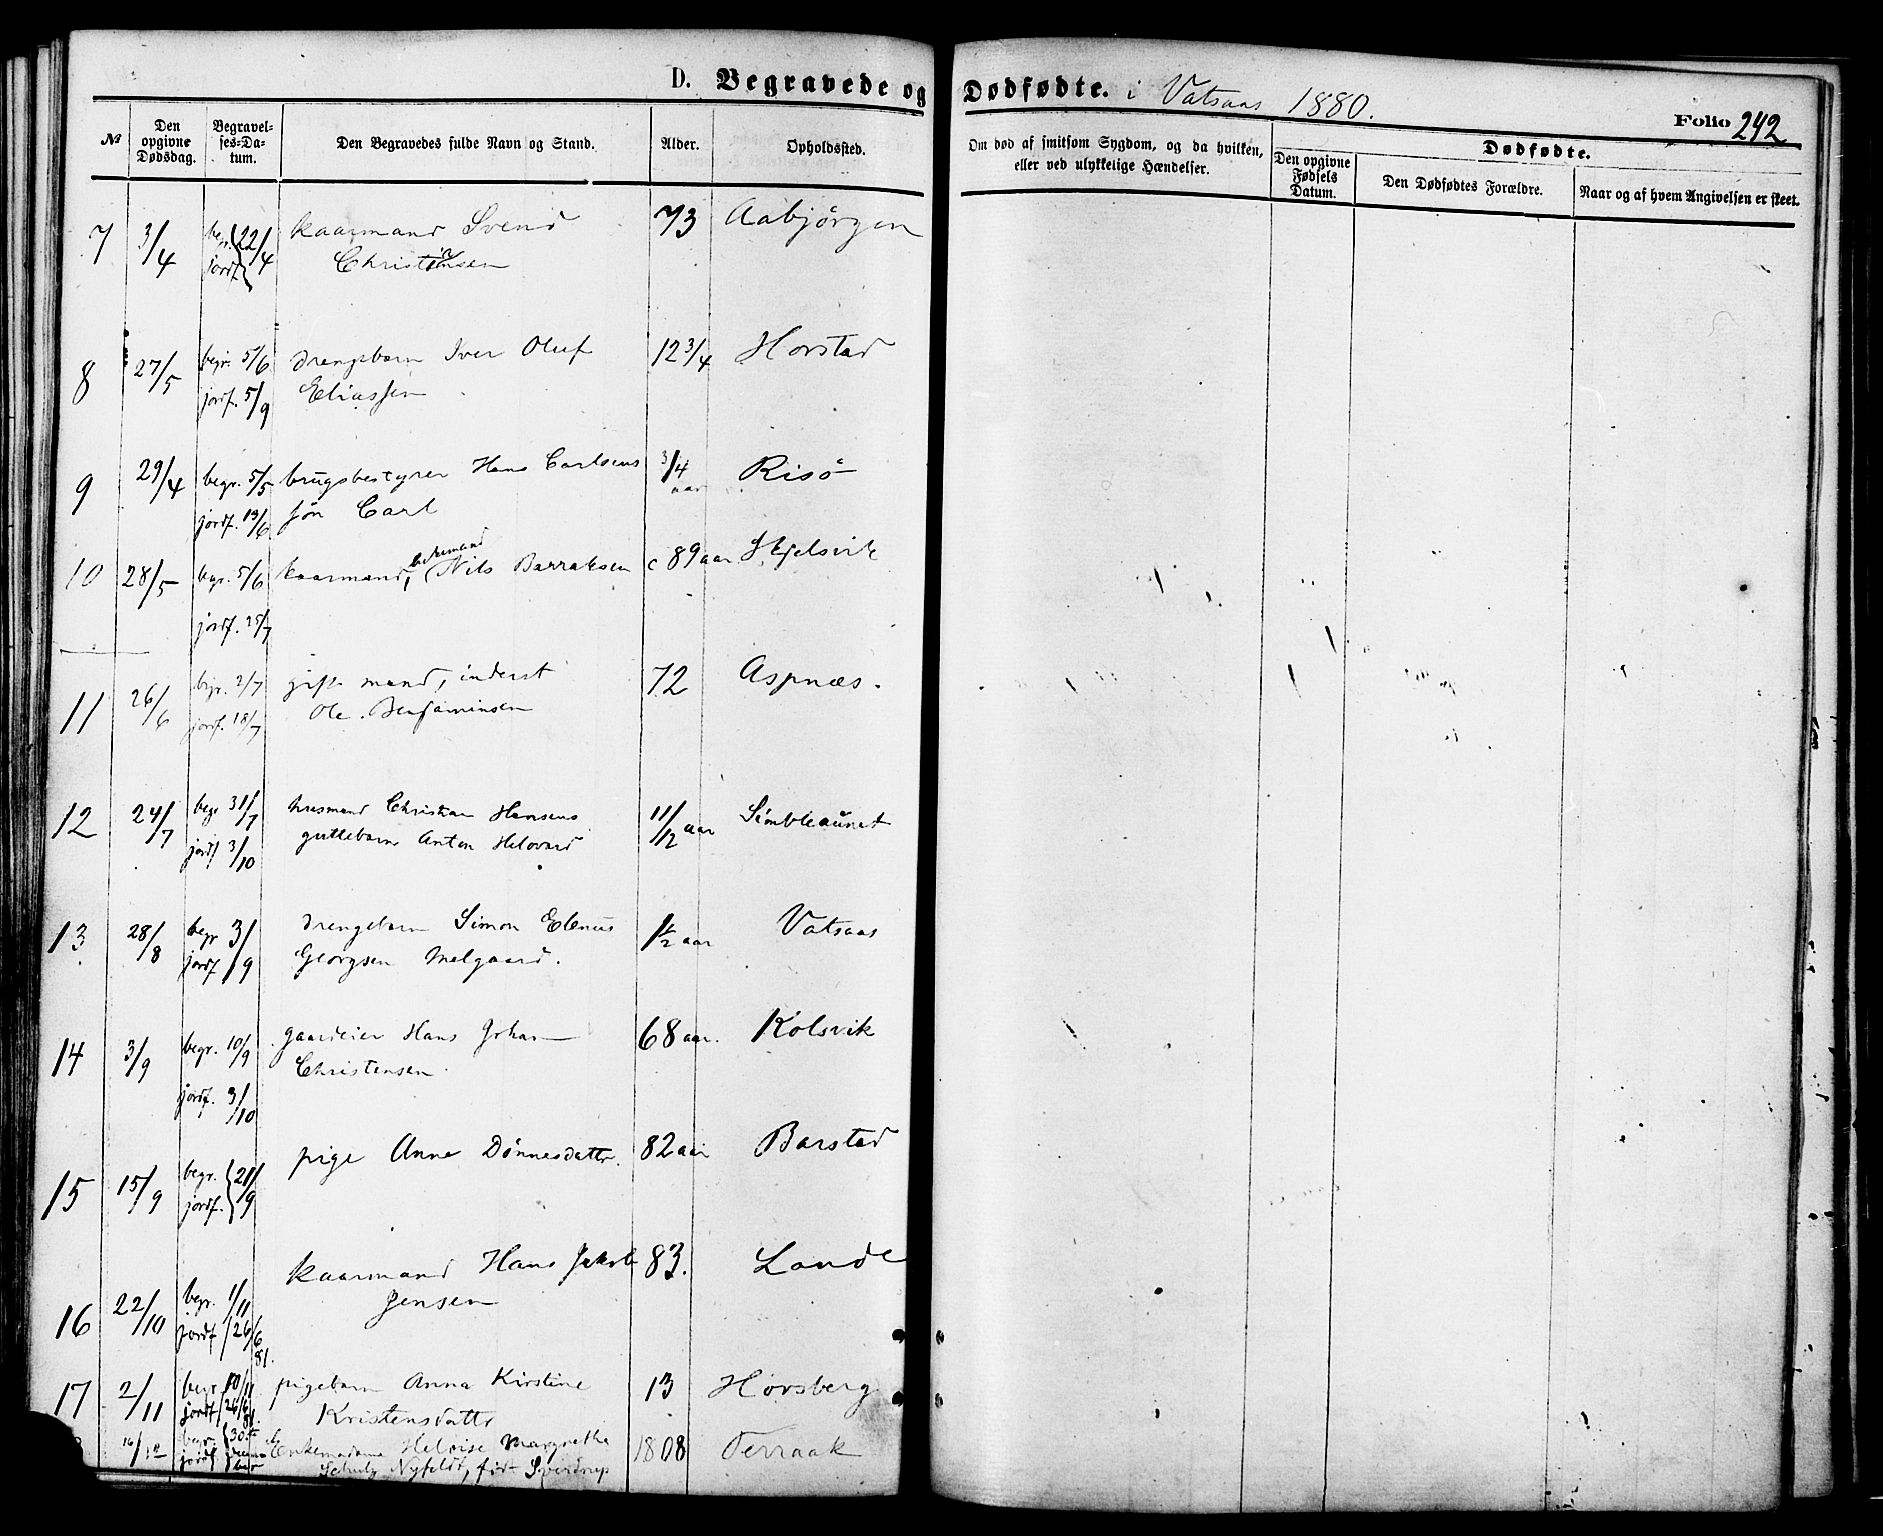 D. Begravede og Dødfødte. i Vatsaas 1880.
Folio 242
№
Den opgivne Dødsdag.
Begravelses-Datum.
Den Begravedes fulde Navn og Stand.
Alder.
Opholdssted.
Om død af smitsom Sygdom, og da hvilken, eller ved ulykkelige Hændelser.
Dødfødte.
Den opgivne Fødsels Datum.
Den Dødfødtes Forældre.
Naar og af hvem Angivelsen er skeet.
7 3/4 begr. jordf. 22/4 kaarmand Svend 73 Aabjørgen
Christensen
8 27/5 begr. 5/6 drengebarn Iver Oluf 12 3/4 Horstad
jordf. 5/9 Eliassen
9 29/4 begr. 5/5 brugsbestyrer Hans Carlsens 3/4 aar Risø
jordf. 13/6 søn Carl
10 28/5 begr. 5/6 kaarmand, Nils Barraksen c 89 aar Skjelsvik
jordf. 25/7
11 26/6 begr. 2/7 gift mand, inderst 72 Aspnæs.
jordf. 18/7 Ole Benjaminsen
12 24/7 begr 31/7 husmand Christian Hansens 11/12 aar Simbleaunet
jordf 3/10 guttebarn Anton Helovard
13 28/8 begr jordf 3/9 drengebarn Simon Elenus 1 1/2 aar Vatsaas
Georgsen Melgaard.
14 3/9 begr. 10/9 gaardeier Hans Johan 68 aar. Kolsvik
jordf. 3/10 Christensen
15 15/9 begr. jordf. 21/9 pige Anne Dønnesdattr. 82 aar Barstad
16 22/10 begr. 1/11 kaarmand Hans Jakob 83. Lande
jordf 26/6 81. Jensen
17 2/11 begr 10/11 pigebarn Anna Kirstine 13 Horsberg
jordf 26/6 81. Kristensdattr
16/12 begr. jordf 30te Enkemadame Heloise Margrethe 1808 Terraak
Schulz Nyfeldt, født Sverdrup